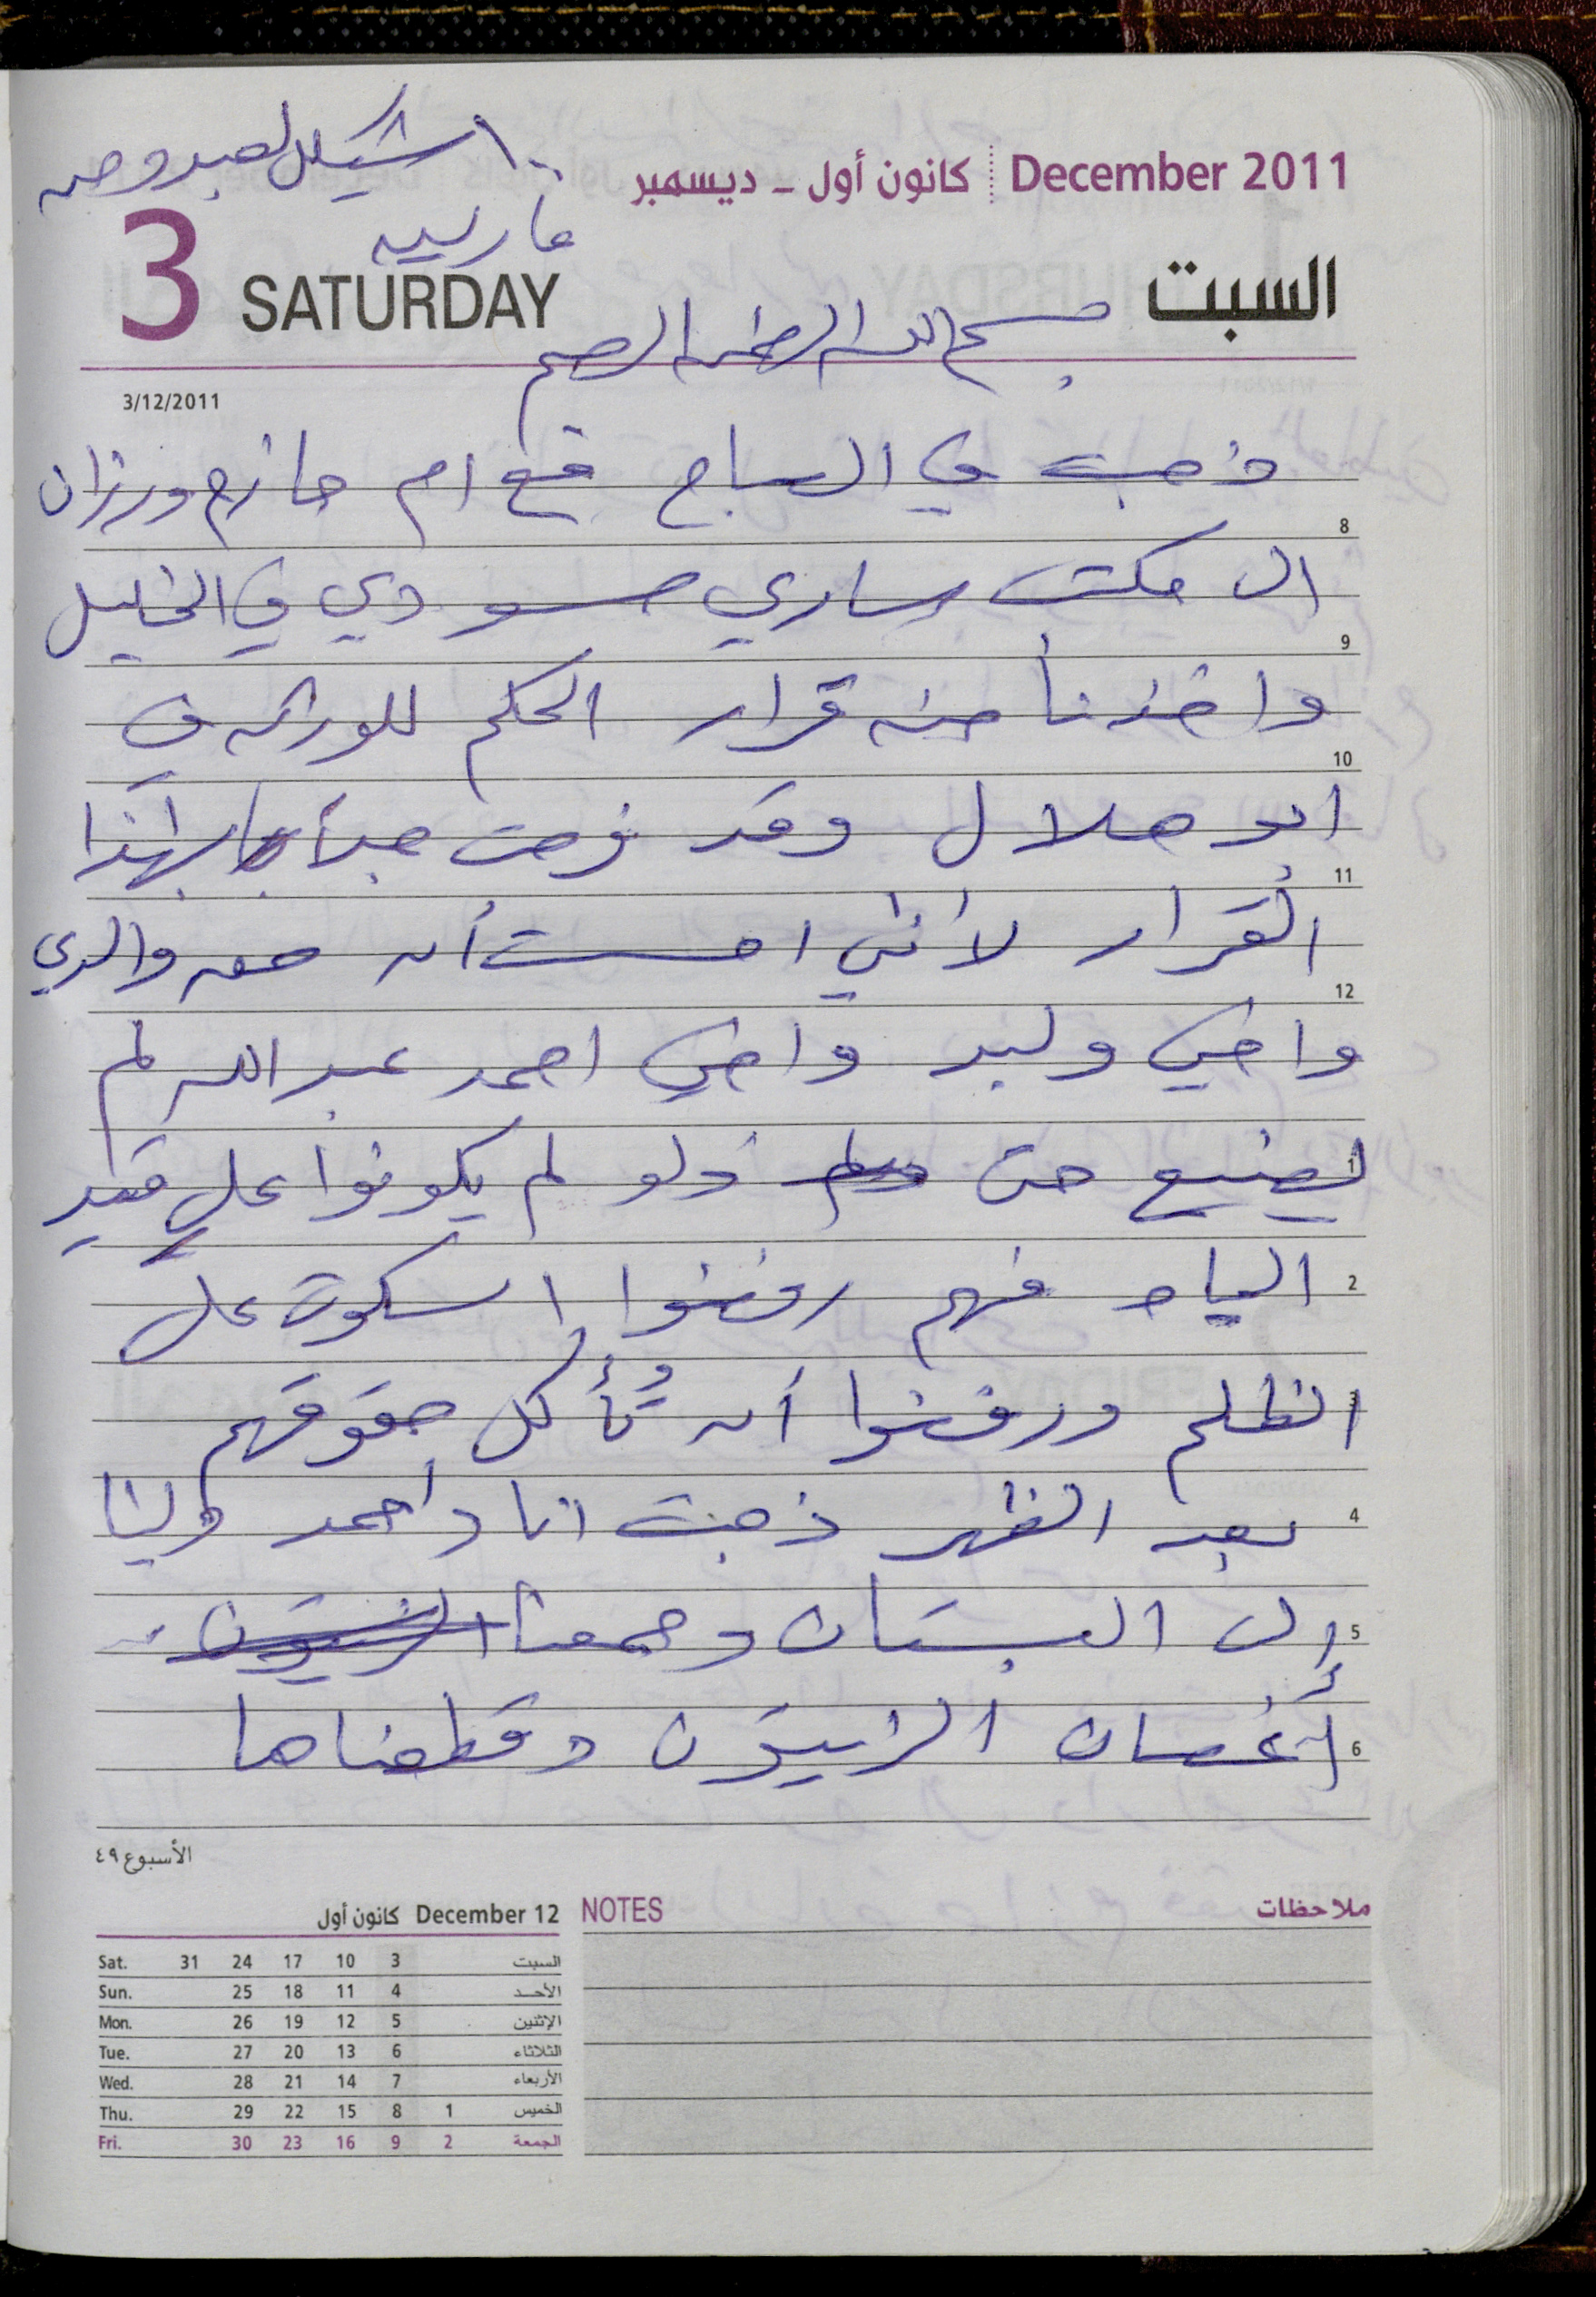 ١٠٠ شيكل لعبدو من
مارسيه
December 2011 كانون أول - ديسمبر
3 SATURDAY السبت
بسم الله الرحمن الرحيم
3/12/2011
ذهبت في الصباح مع ام حازم ورزان
8
الى مكتب ساري مسودي في الخليل
9
واخذنا منه قرار الحكم للوراثه في
10
ابو هلال وقد فرحت جداً بهذا
11
القرار لأنني احسست أن حق والدي
12
واخي وليد واخي احمد عبد الله لم
1
يضيع حتى ولو لم يكونوا على قيد
2
الحياه فهم رفضوا السكوت على
3
الظلم ورفضوا أن تُأكل حقوقهم
4
بعد الظهر ذهبت انا واحمد ولينا
5
إلى البستان وجمعنا الزيتون
6
أغصان الزيتون وقطعناها
الأسبوع ٤٩
December 12 كانون أول
NOTES ملاحظات
Sat. 31 24 17 10 3 السبت
Sun. 25 18 11 4 الأحد
Mon. 26 19 12 5 الإثنين
Tue. 27 20 13 6 الثلاثاء
Wed. 28 21 14 7 الأربعاء
Thu. 29 22 15 8 1 الخميس
Fri. 30 23 16 9 2 الجمعة